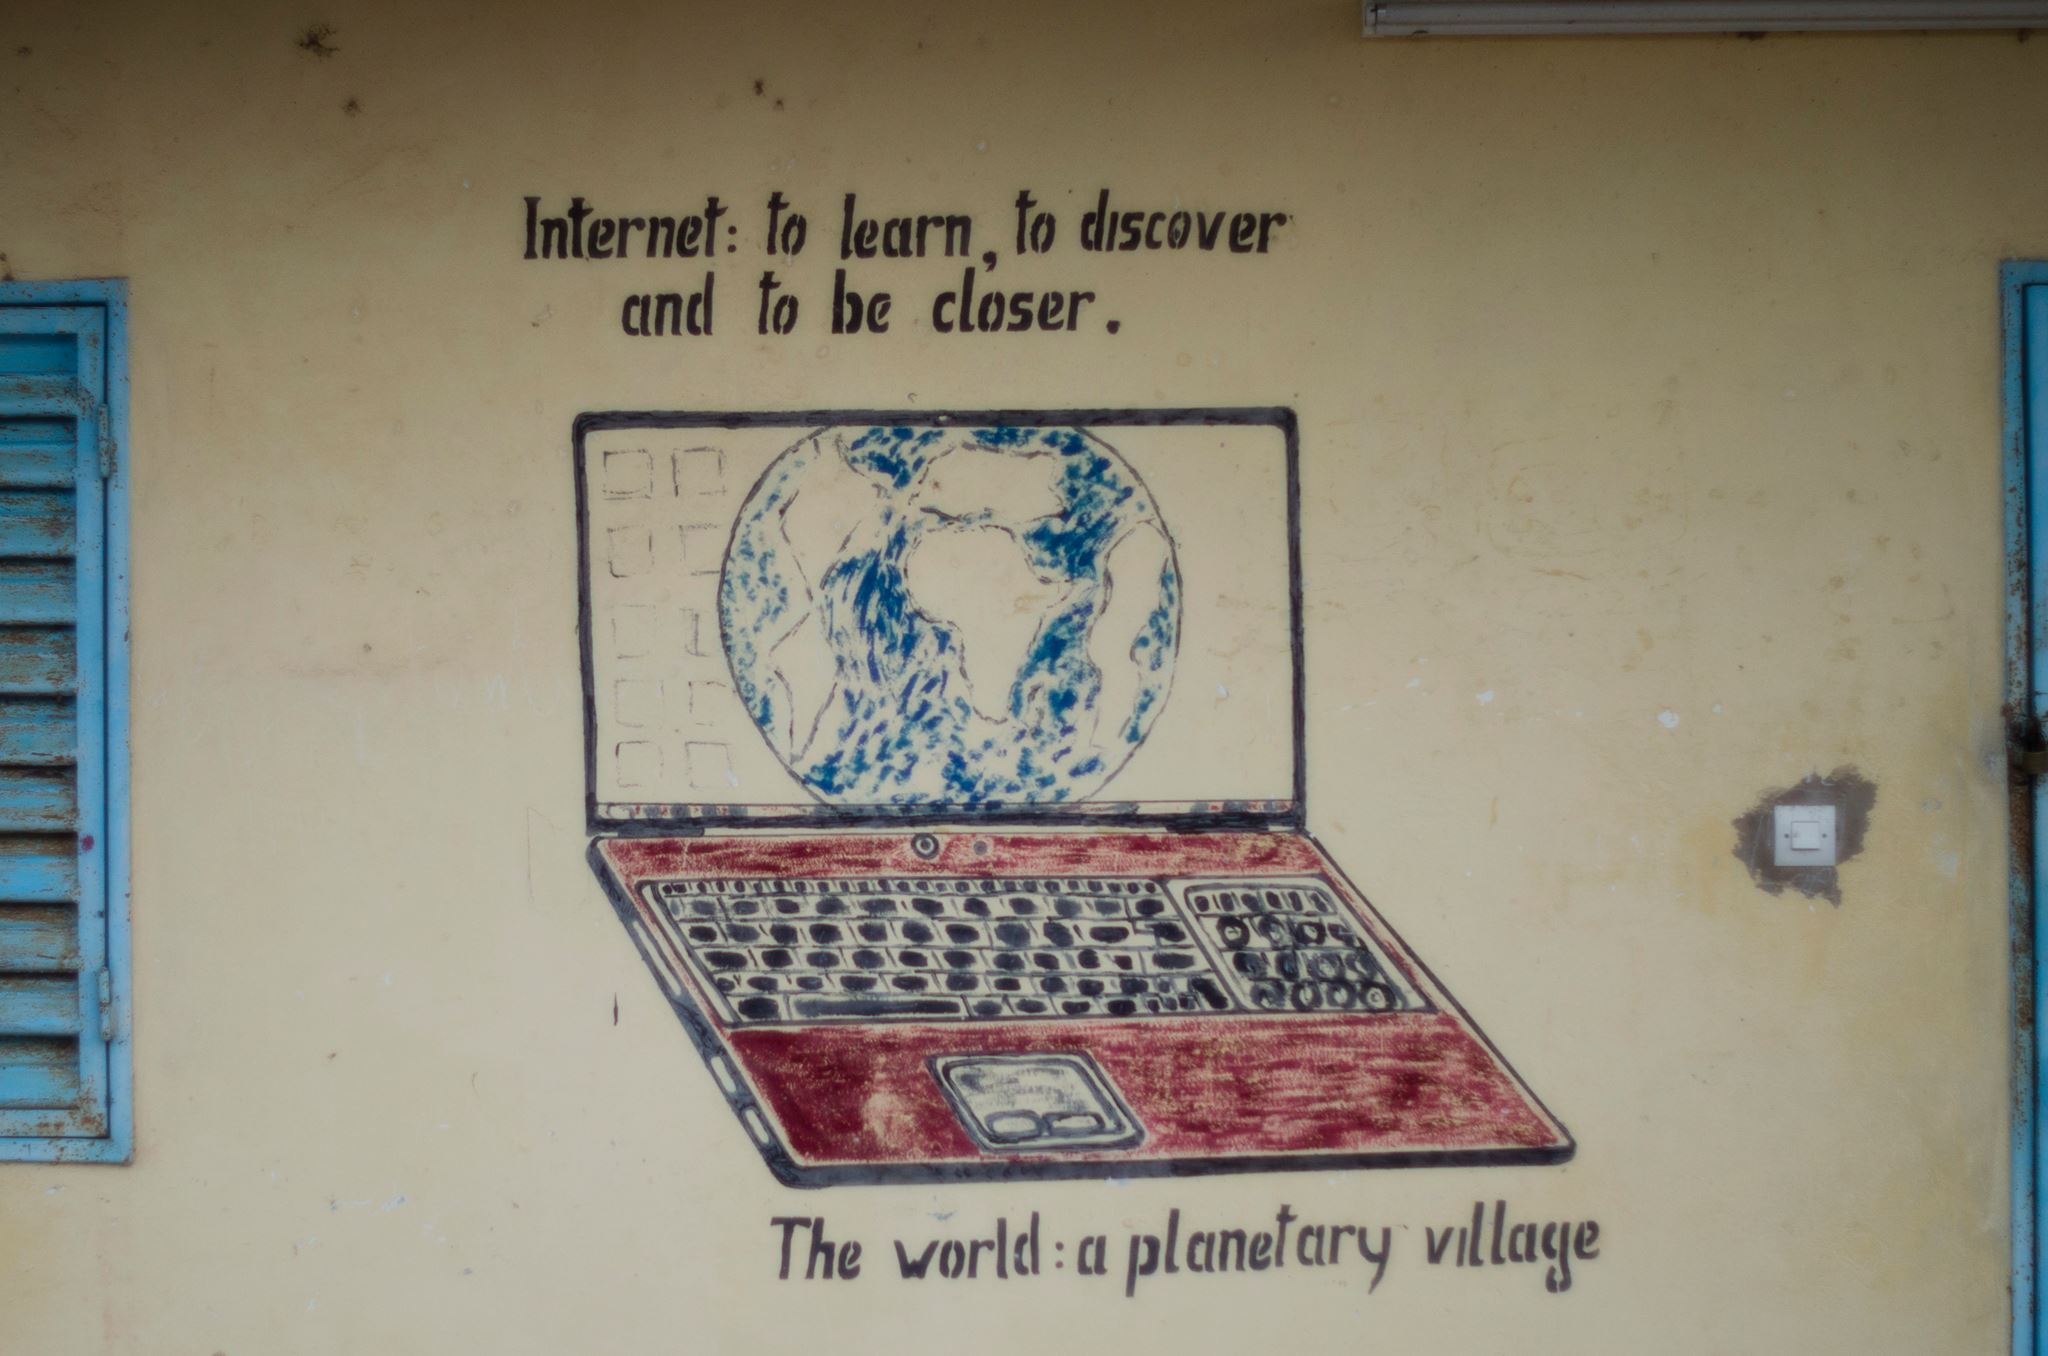 Internet: to learn, to discover
and to be closer.
The world: a planetary village